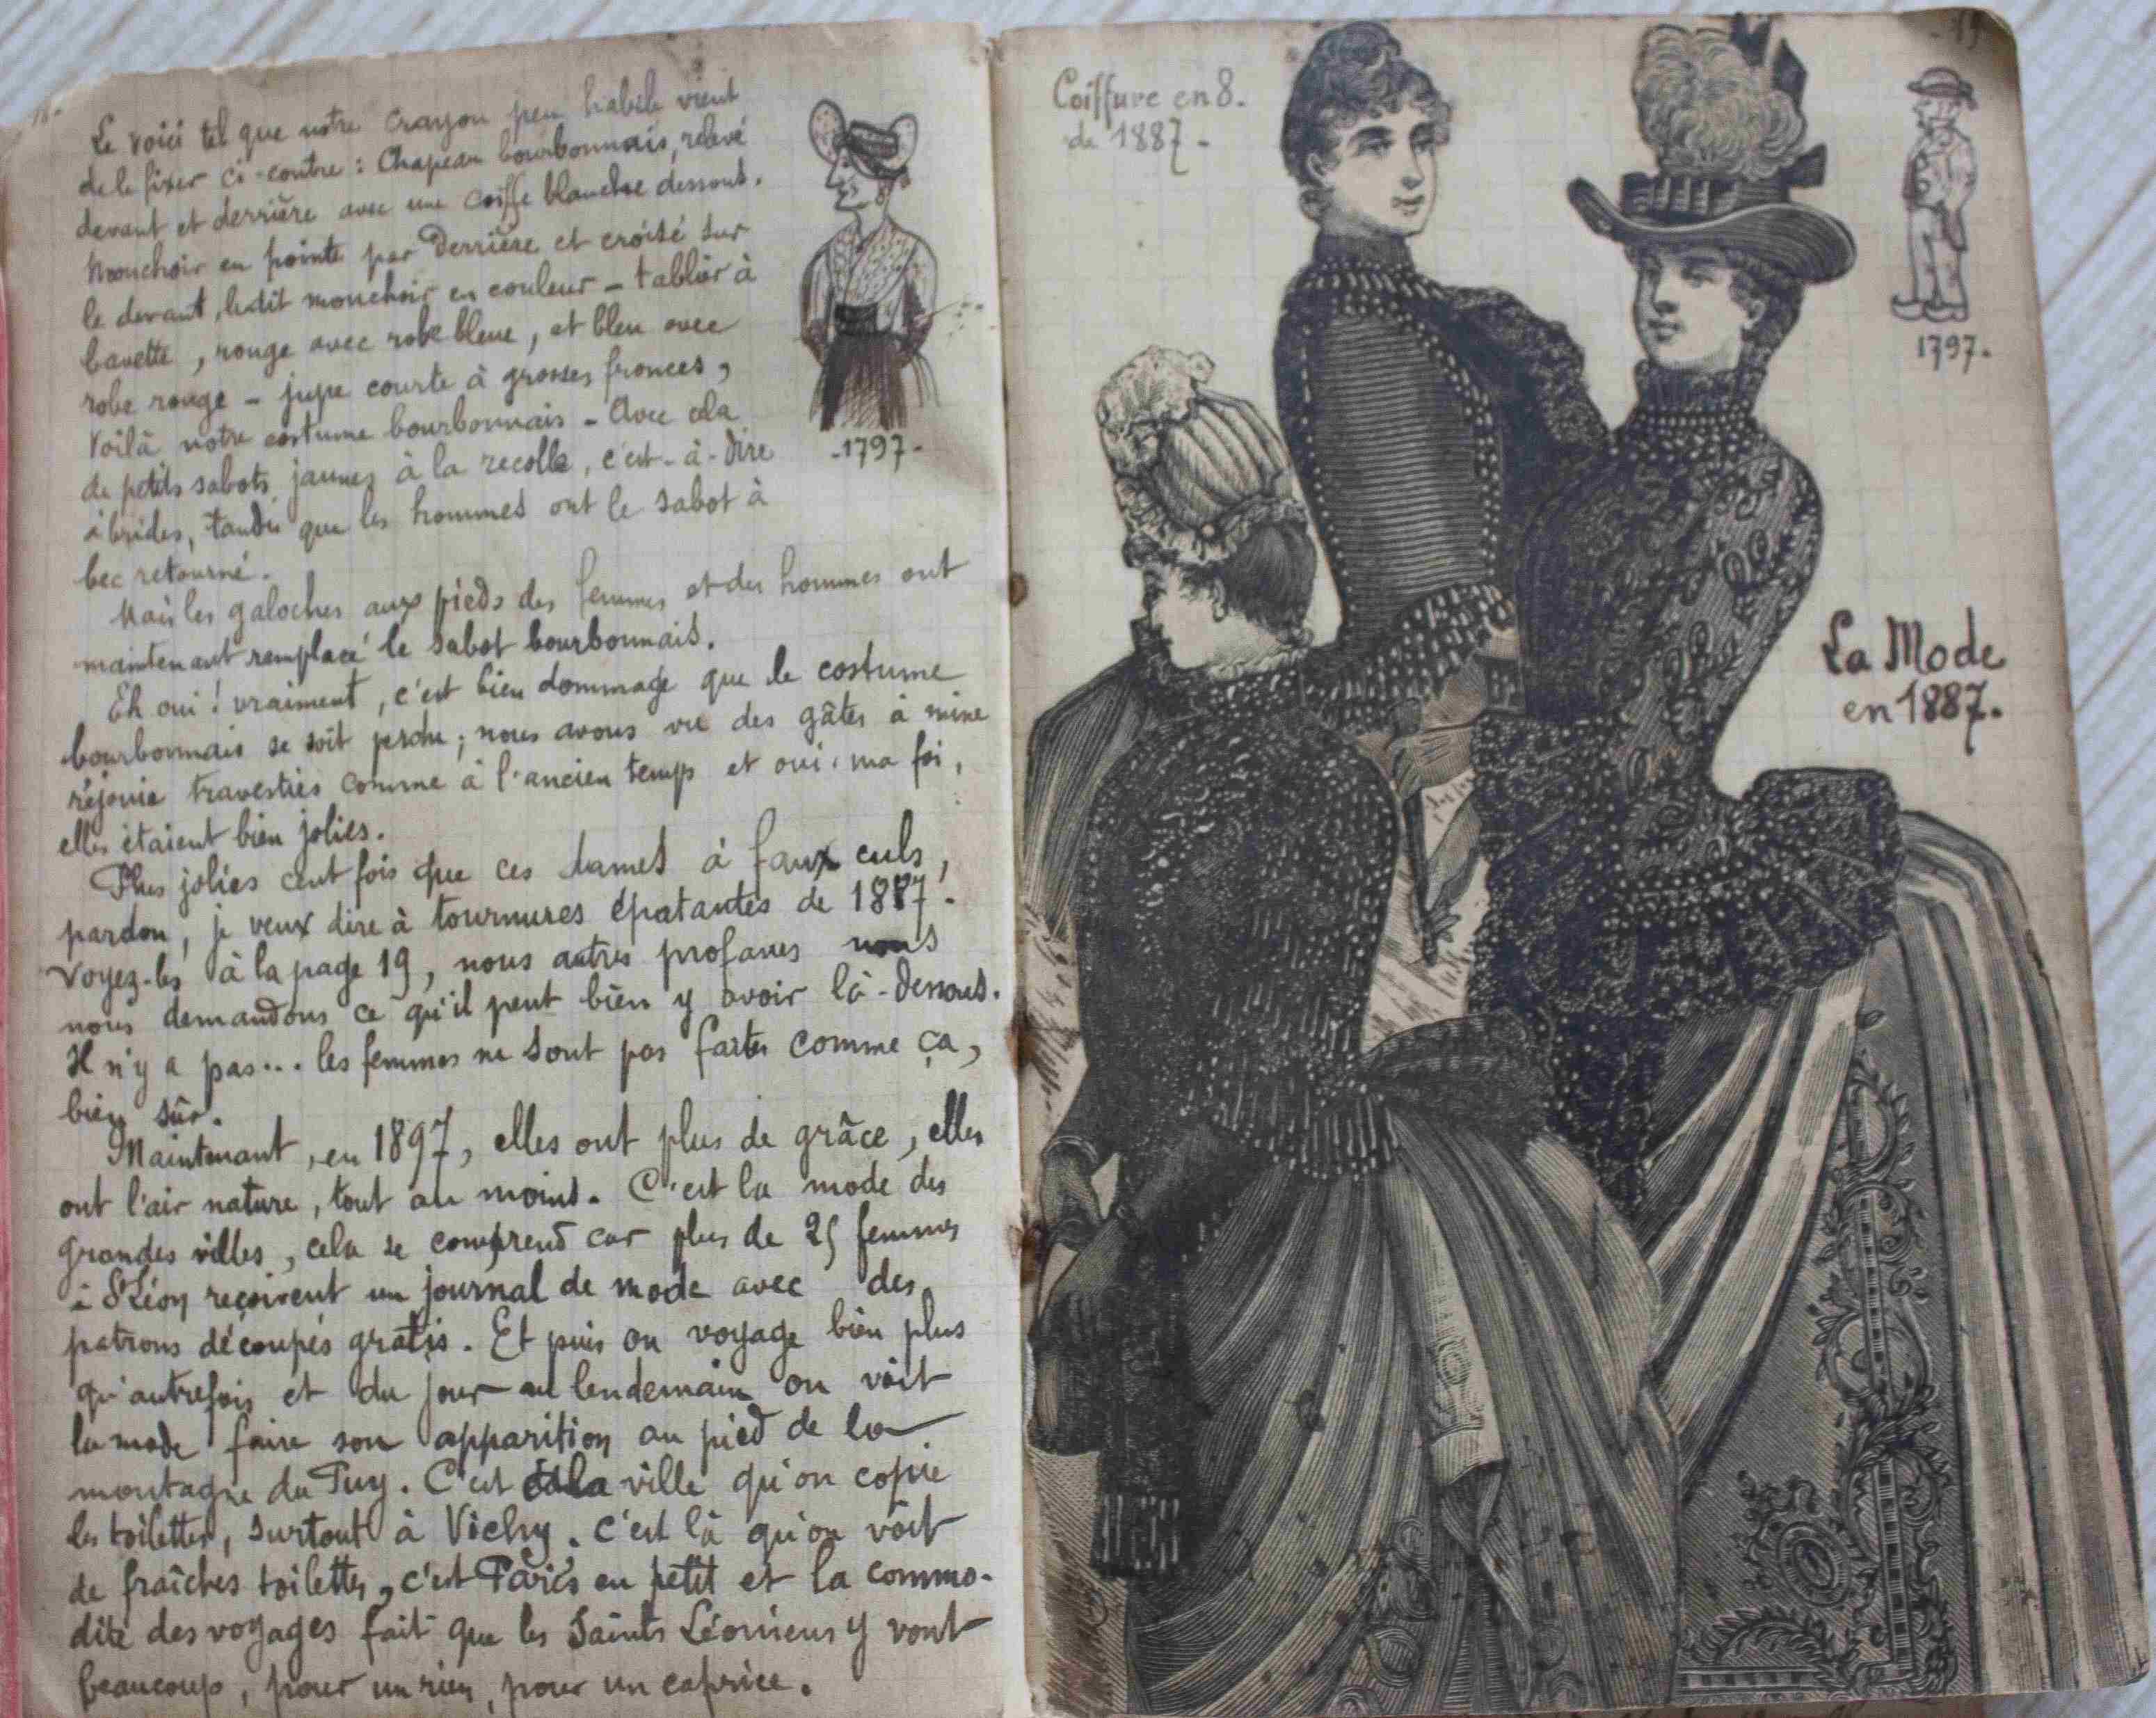 18.
Le voici tel que notre crayon peu habile vient
de le fixer ci-contre : Chapeau bourbonnais, relevé
devant et derrière avec une coiffe blanche dessous.
Mouchoir en pointe par Derrière et croisé sur
le devant, ledit mouchoir en couleur - tablier à
bavette, rouge avec robe bleue, et bleu avec
robe rouge - jupe courte à grosses fronces,
Voilà notre costume bourbonnais - Avec cela
de petits sabots jaunes à la recolle, c'est-à-dire
à brides, tandis que les hommes ont le sabot à
bec retourné.
-1797-
Mais les galoches aux pieds des femmes et des hommes ont
maintenant remplacé le sabot bourbonnais.
Eh oui ! vraiment, c'est bien dommage que le costume
bourbonnais se soit perdu ; nous avons vu des gâtes à mine
réjouie travesties comme à l'ancien temps et oui, ma foi,
elles étaient bien jolies.
Plus jolies cent fois que ces dames à faux culs,
pardon, je veux dire à tournures épatantes de 1887.
Voyez-les à la page 19, nous autres profanes nous
nous demandons ce qu'il peut bien y avoir là-dessous.
Il n'y a pas... les femmes ne sont pas faites comme ça,
bien sûr.
Maintenant, en 1897, elles ont plus de grâce, elles
ont l'air nature, tout au moins. C'est la mode des
grandes villes, cela se comprend car plus de 25 femmes
à St Léon reçoivent un journal de mode avec des
patrons découpés gratis. Et puis on voyage bien plus
qu'autrefois et du jour au lendemain on voit
la mode faire son apparition au pied de la
montagne du Puy. C'est à la ville qu'on copie
les toilettes, surtout à Vichy. C'est là qu'on voit
de fraîches toilettes, c'est Paris en petit et la commo-
dité des voyages fait que les Saints Léoniens y vont
beaucoup, pour un rien, pour un caprice.
19
Coiffure en 8.
de 1887-
1797.
La Mode
en 1887.